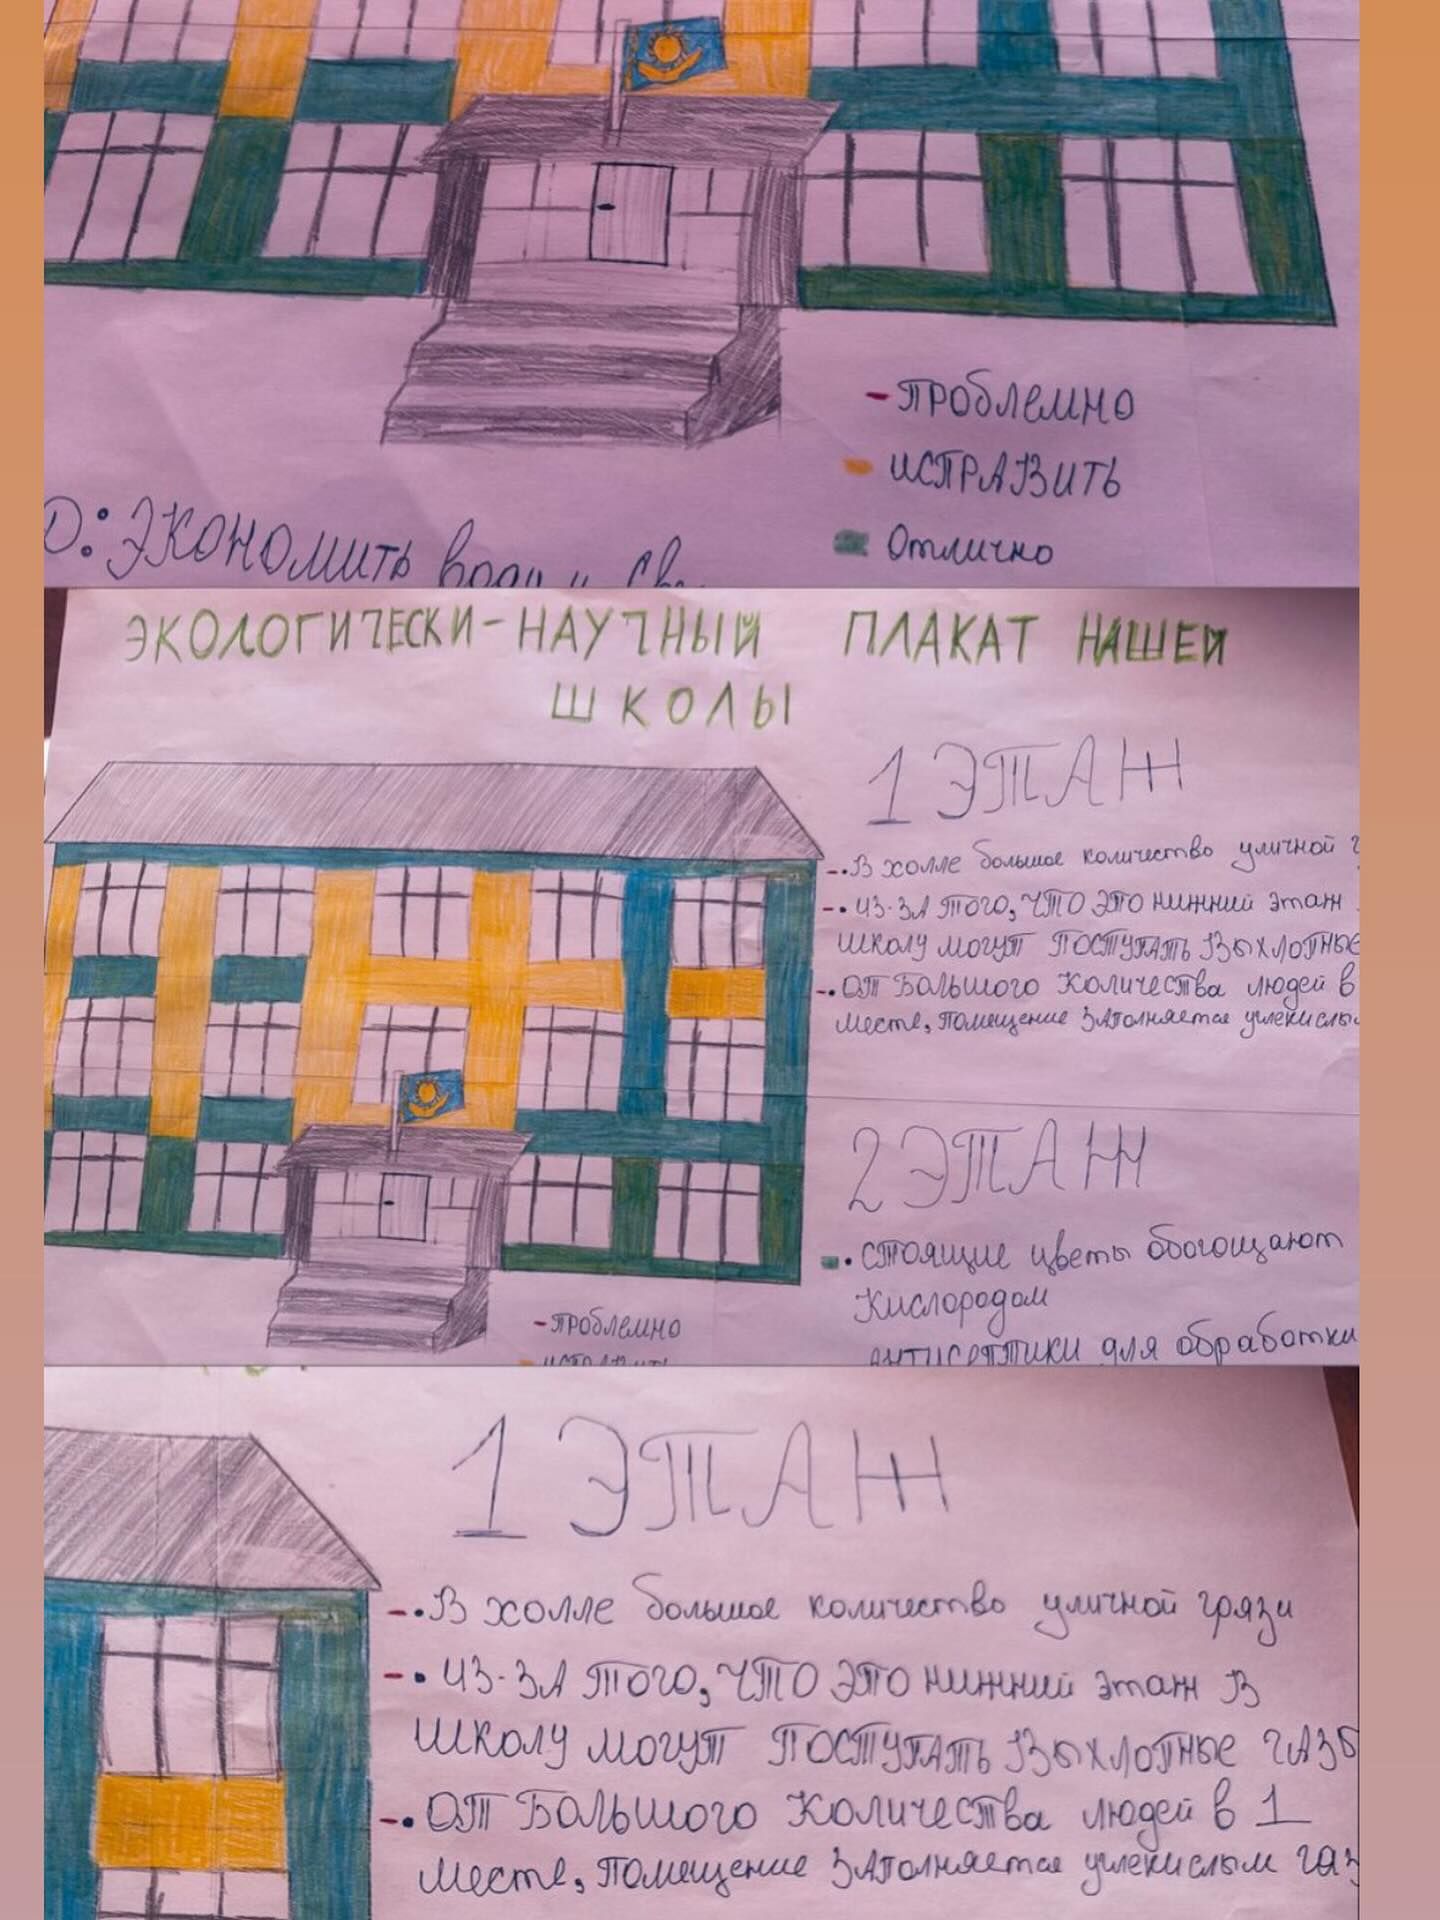 - ПРОБЛЕМНО
ИСПРАВИТЬ
Отлично
О: ЭКОНОМИТЬ воду и
ЭКОЛОГИЧЕСКИ-НАУЧНЫЙ ПЛАКАТ НАШЕЙ
ШКОЛЫ
1 ЭТАЖ
-• В холле большое количество уличной г
-• ИЗ-ЗА ТОГО, ЧТО ЭТО нижний этаж
ШКОЛУ МОГУТ ПОСТУПАТЬ ВЫХЛОПНЫЕ
-• ОТ БОЛЬШОГО КОЛИЧЕСТВА людей в
месте, помещение заполняется углекислы
2 ЭТАЖ
• СТОЯЩИЕ цветы обогощают
Кислородом
АНТИСЕПТИКИ для обработки
- ПРОБЛЕМНО
ИСПРАВИТЬ
1 ЭТАЖ
-• В холле большое количество уличной грязи
-• ИЗ-ЗА ТОГО, ЧТО ЭТО нижний этаж В
ШКОЛУ МОГУТ ПОСТУПАТЬ ВЫХЛОПНЫЕ ГАЗЫ
-• ОТ БОЛЬШОГО КОЛИЧЕСТВА людей в 1
месте, помещение заполняется углекислым газ